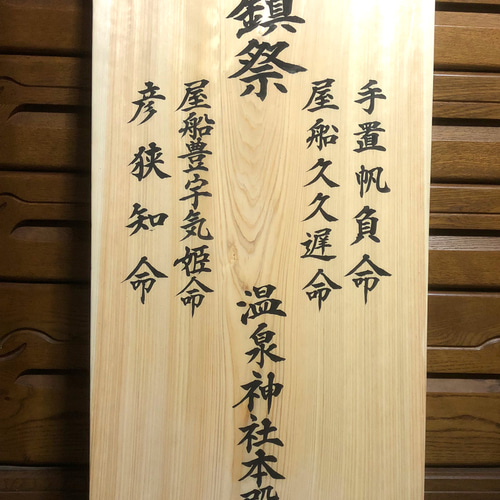 手置帆負命
屋船久久遅命
鎮祭
温泉神社本殿
屋船豊宇気姫命
彦狭知命